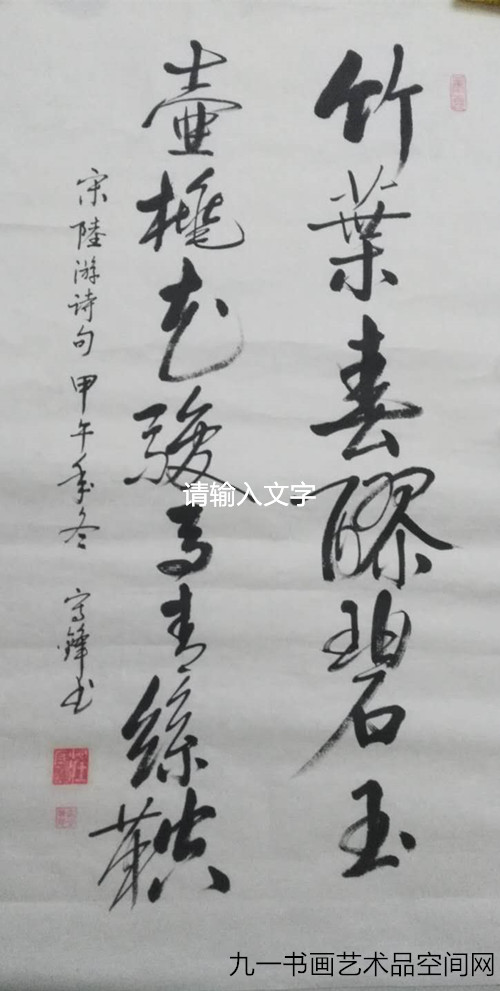 竹葉春醪碧玉
壺桃花駿馬青絲鞚
宋陸游诗句甲午年冬
鋒书
请输入文字
九一书画艺术品空间网